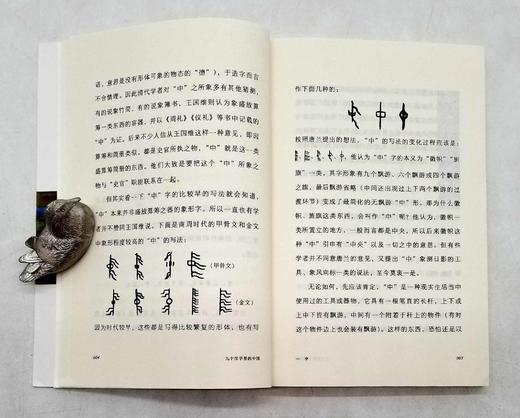 语，意思是没有形体可象的物态的“德”)，于造字而言
不合情理。因此清代学者对“中”之所象多有其他猜测，
有的说象竹简，有的说象簿书，王国维则认为象盛放算
筹一类东西的容器，并以《周礼》《仪礼》等书中记载的
“中”为证。后来不少人信从王国维这样一种意见，即因
算筹和简册类似，都是史官所执之物，“中”就是这一类
盛算筹简册的东西。他们大致是要把这个“中”所象之
物与“史官”职掌联系在一起。
但其实看一下“中”字的比较早的写法就会知道，
“中”本来并非盛放算筹之器的象形字。所以一直也有学
者并不赞同王国维说。下面是商周时代的甲骨文和金文
中象形程度较高的“中”的写法：
(甲骨文)
(金文)
因为时代较早，这些都是写得比较繁复的形体，也有写
004
九个汉字里的中国
作下面几种的：
按照唐兰提出的想法，“中”的写法的变化过程应该是：
他认为“中”字的本义为“徽帜”“旂
旗”一类，其字形象有九个飘游、六个飘游或四个飘游
之旗，最后飘游省略（中间还出现过上下两个飘游的过
渡环节）变成了最简化的无飘游“中”形。那为什么徽
帜、旂旗这类东西，会写作“中”呢？他认为，徽帜一
类所置立的地方，一般而言都是中央，所以后来徽帜这
种“中”引申有“中央”以及一切之中的意思。但有些
学者并不同意唐兰的意见，又提出“中”象测日影的工
具、象风向标一类的说法，至今莫衷一是。
无论如何，先应该肯定，“中”是一种现实生活当中
使用过的工具或器物，它具有一根笔直的长杆，上下或
上中下皆有飘游，中间有一个附着于杆上的物件（有时
这个物件边上也会装有飘游）。这样的东西，恐怕还是以
一 中
005